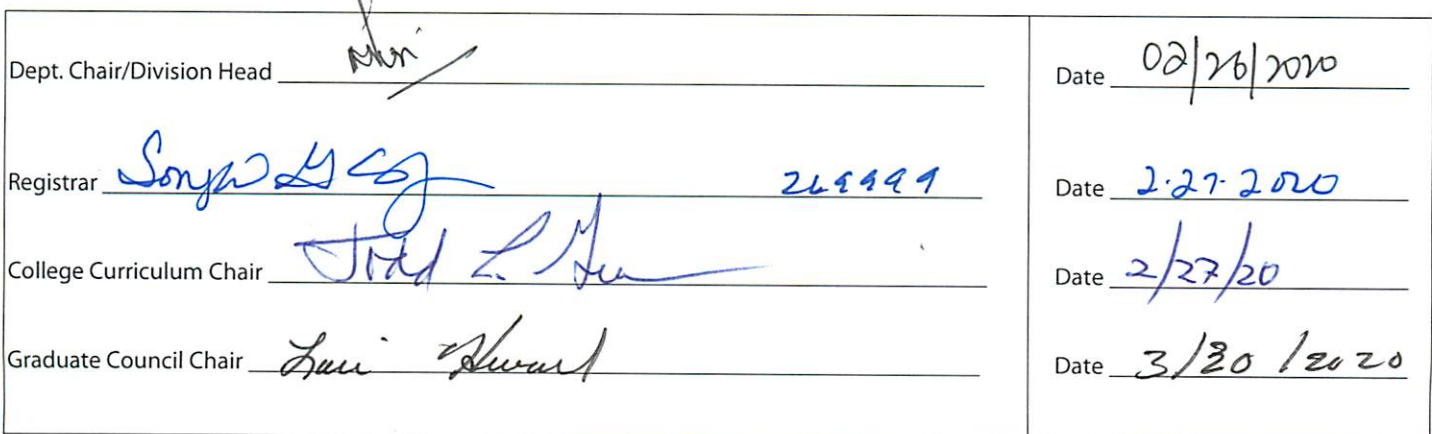 Dept. Chair/Division Head Date 02/26/2020
Registrar 269999 Date 2.27.2020
College Curriculum Chair Todd L. Date 2/27/20
Graduate Council Chair Date 3/20/2020